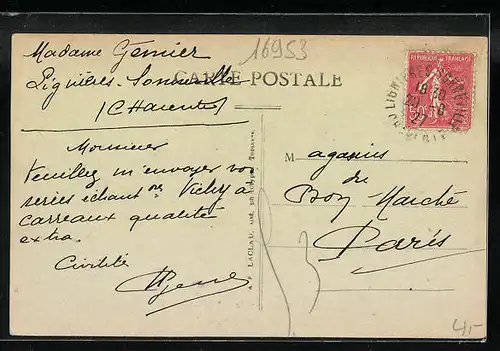 Madame Gemier
Lignières-Sonneville
(Charente)
16953
CARTE POSTALE
RÉPUBLIQUE FRANÇAISE
Monsieur
Veuillez m'envoyer vos
series échant ns Vichy à
carreaux qualité
extra.
Civilité
Magasins
du
Bon Marché
Paris
3
4,-